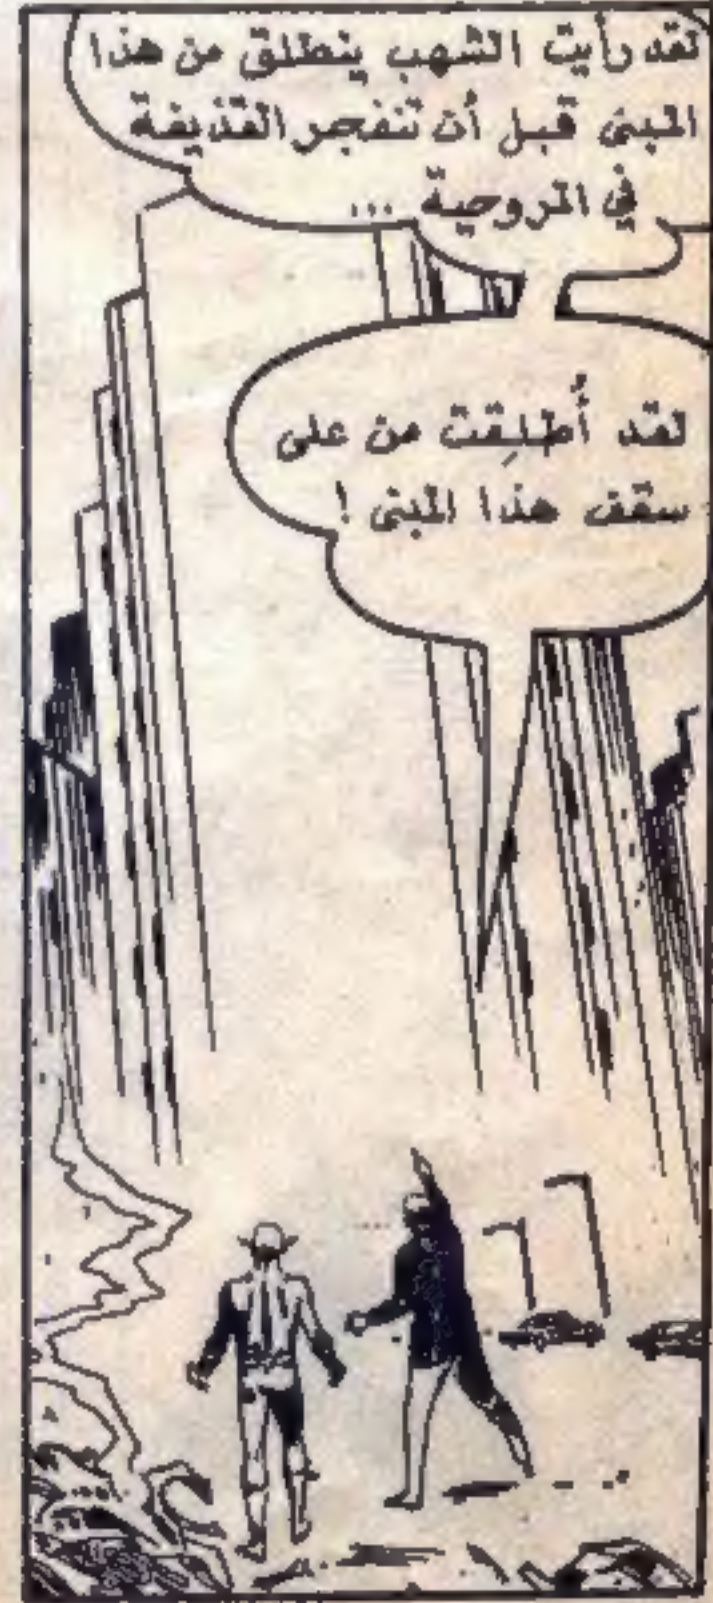 لقد رأيت الشهب ينطلق من هذا
المبنى قبل أن تنفجر القذيفة
في المروحية ...
لقد أُطلِقت من على
سقف هذا المبنى !